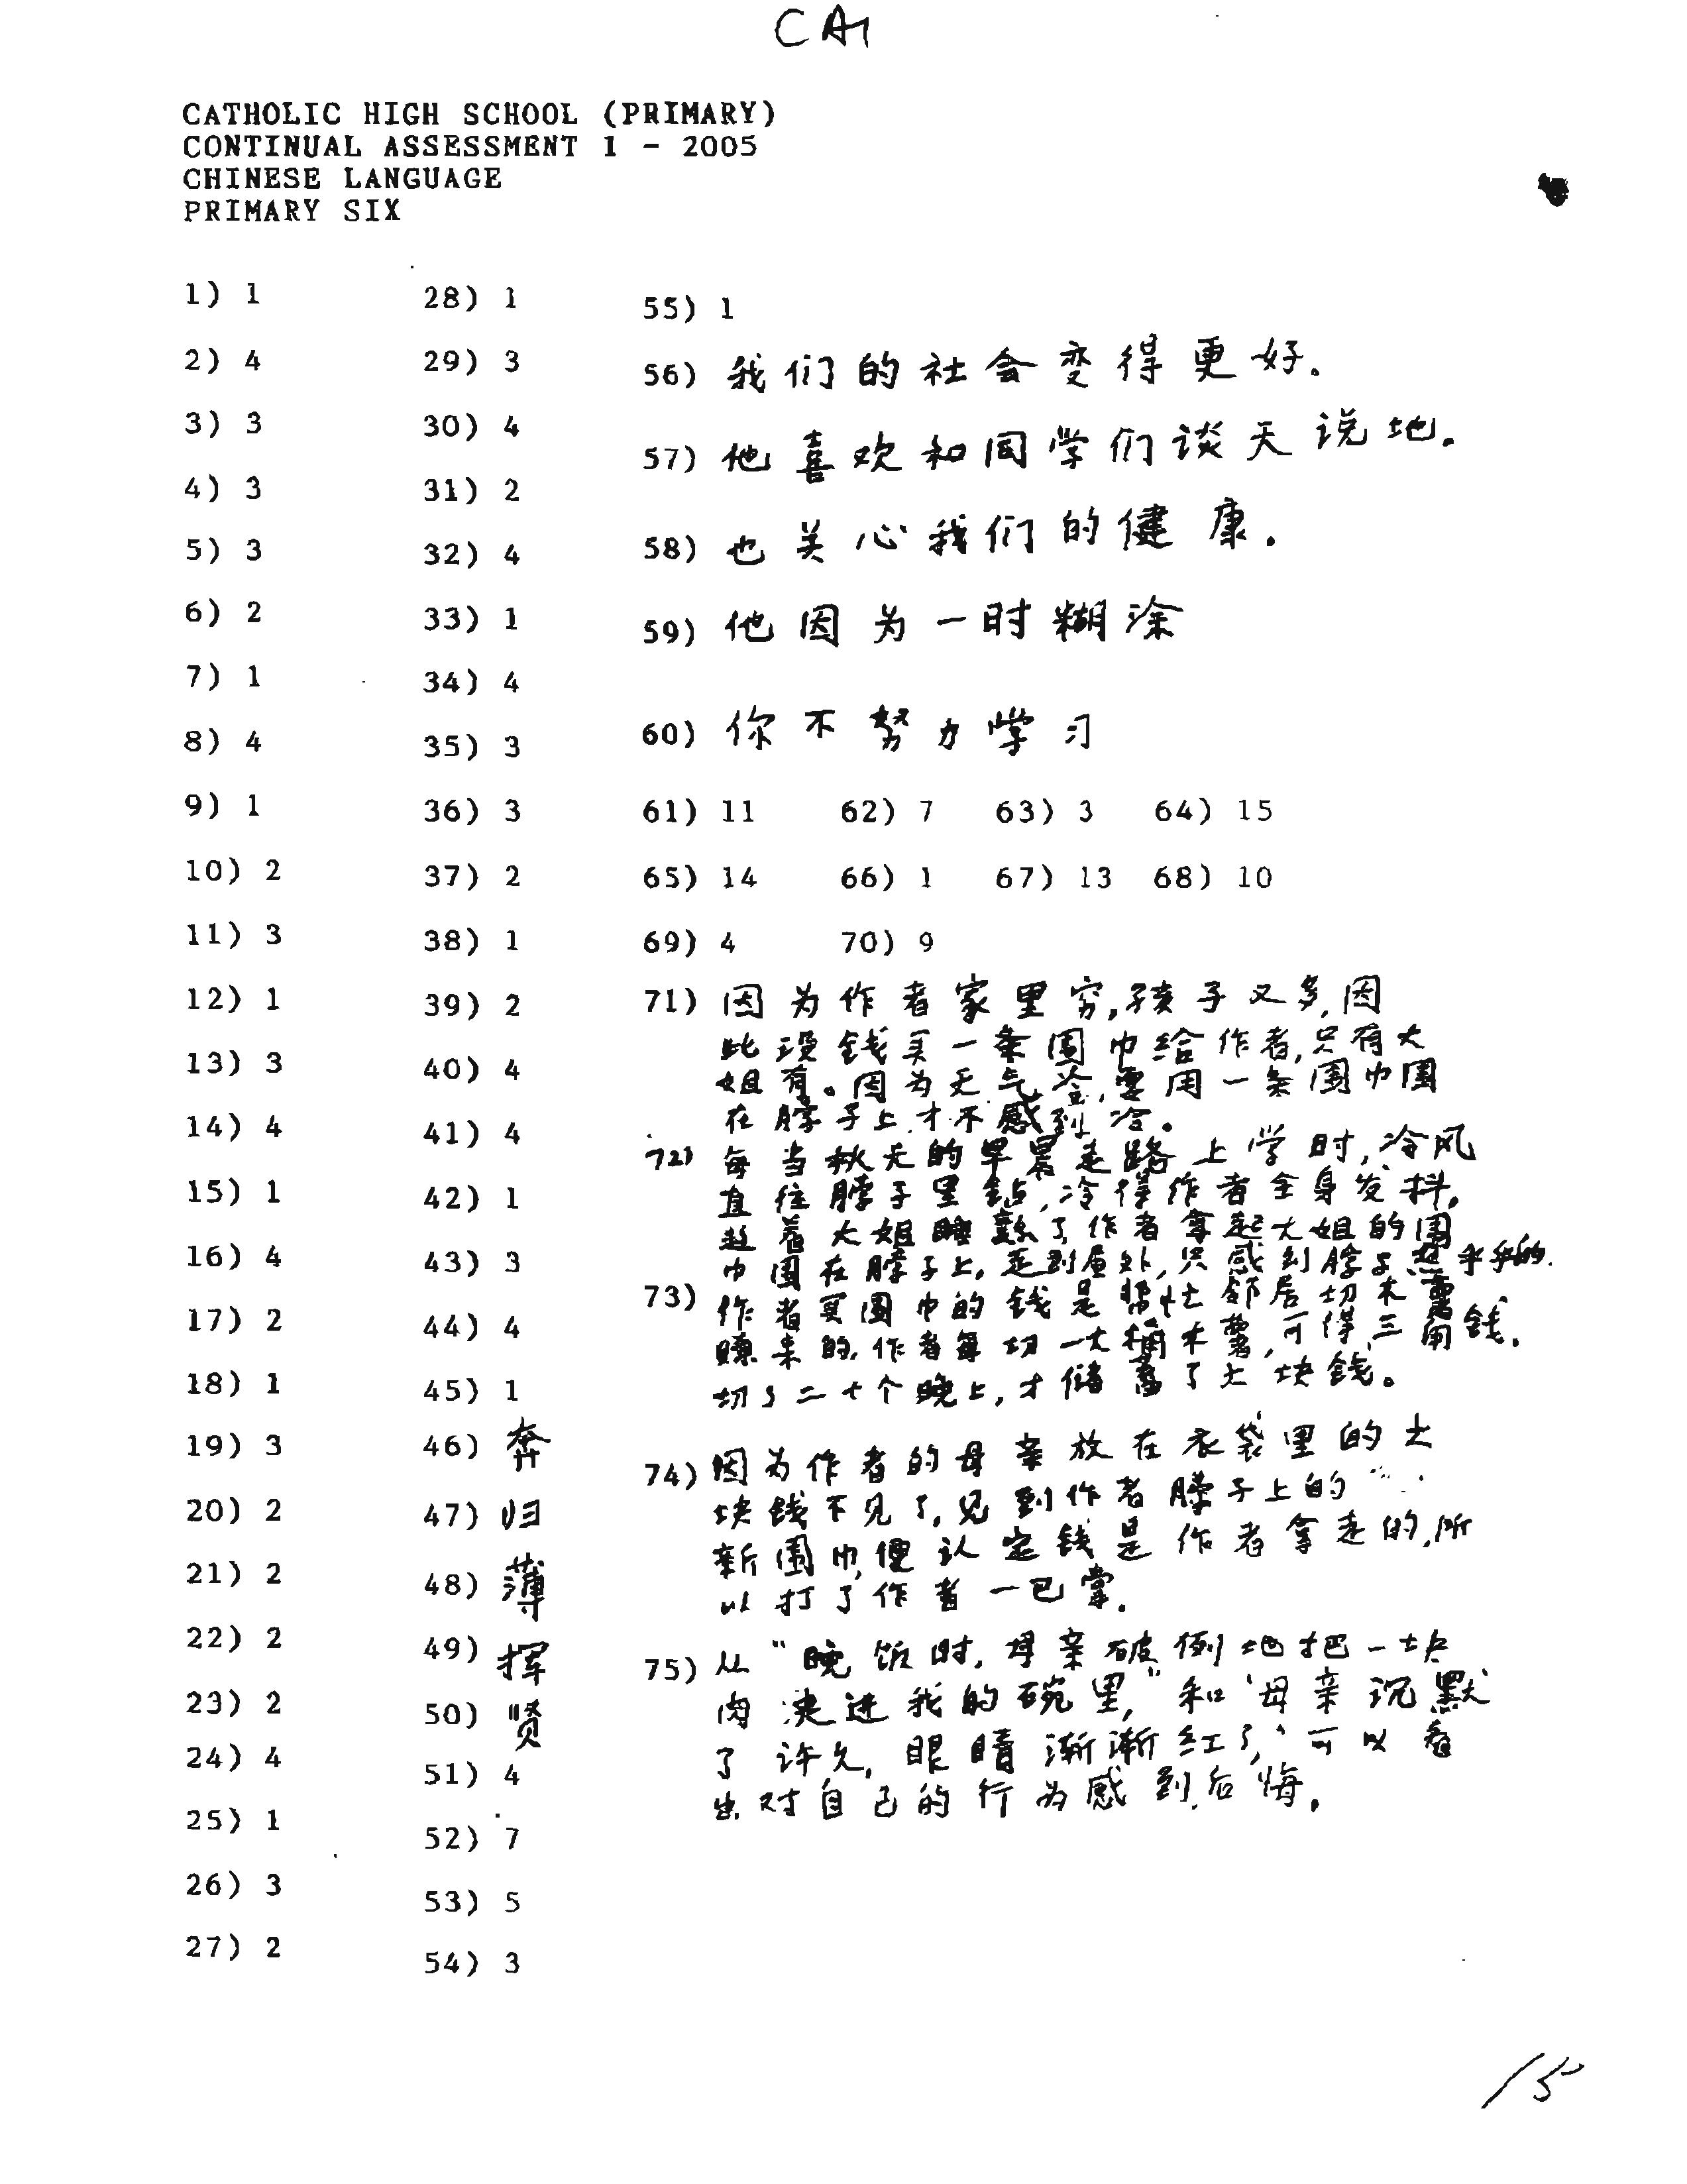 CA1
CATHOLIC HIGH SCHOOL (PRIMARY)
CONTINUAL ASSESSMENT 1 - 2005
CHINESE LANGUAGE
PRIMARY SIX
1) 1
2) 4
3) 3
4) 3
5) 3
6) 2
7) 1
8) 4
9) 1
10) 2
11) 3
12) 1
13) 3
14) 4
15) 1
16) 4
17) 2
18) 1
19) 3
20) 2
21) 2
22) 2
23) 2
24) 4
25) 1
26) 3
27) 2
28) 1
29) 3
30) 4
31) 2
32) 4
33) 1
34) 4
35) 3
36) 3
37) 2
38) 1
39) 2
40) 4
41) 4
42) 1
43) 3
44) 4
45) 1
46) 奔
47) 归
48) 薄
49) 挥
50) 贤
51) 4
52) 7
53) 5
54) 3
55) 1
56) 我们的社会变得更好.
57) 他喜欢和同学们谈天说地.
58) 也关心我们的健康.
59) 他因为一时糊涂
60) 你不努力学习
61) 11 62) 7 63) 3 64) 15
65) 14 66) 1 67) 13 68) 10
69) 4 70) 9
71) 因为作者家里穷,孩子又多,因
此没钱买一条围巾给作者,只有大
姐有。因为天气冷,要用一条围巾围
在脖子上,才不感到冷。
72) 每当秋天的早晨走路上学时,冷风
直往脖子里钻,冷得作者全身发抖.
趁着大姐睡熟了作者拿起大姐的围
巾围在脖子上,走到屋外,只感到脖子热乎乎的.
73) 作者买围巾的钱是帮忙邻居切木薯
赚来的,作者每切一大桶木薯,可得三角钱.
切了二十个晚上,才储蓄了六块钱。
74) 因为作者的母亲放在衣袋里的六
块钱不见了,见到作者脖子上的
新围巾,便认定钱是作者拿走的,所
以打了作者一巴掌.
75) 从"晚饭时,母亲破例地把一块
肉夹进我的碗里,"和"母亲沉默
了许久,眼睛渐渐红了,"可以看
出对自己的行为感到后悔.
15